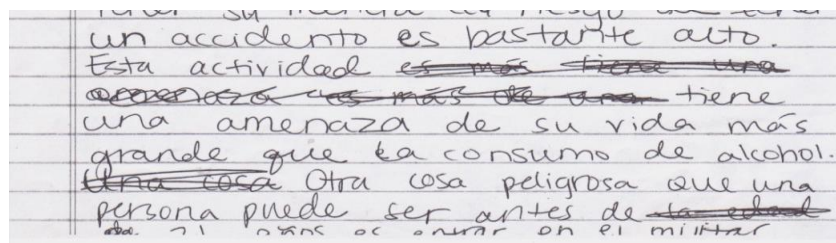 un accidento es bastante alto.
Esta actividad es más tiene una
es más de una tiene
una amenaza de su vida más
grande que la consumo de alcohol.
Una cosa Otra cosa peligrosa que una
persona puede ser antes de la edad
en el militar